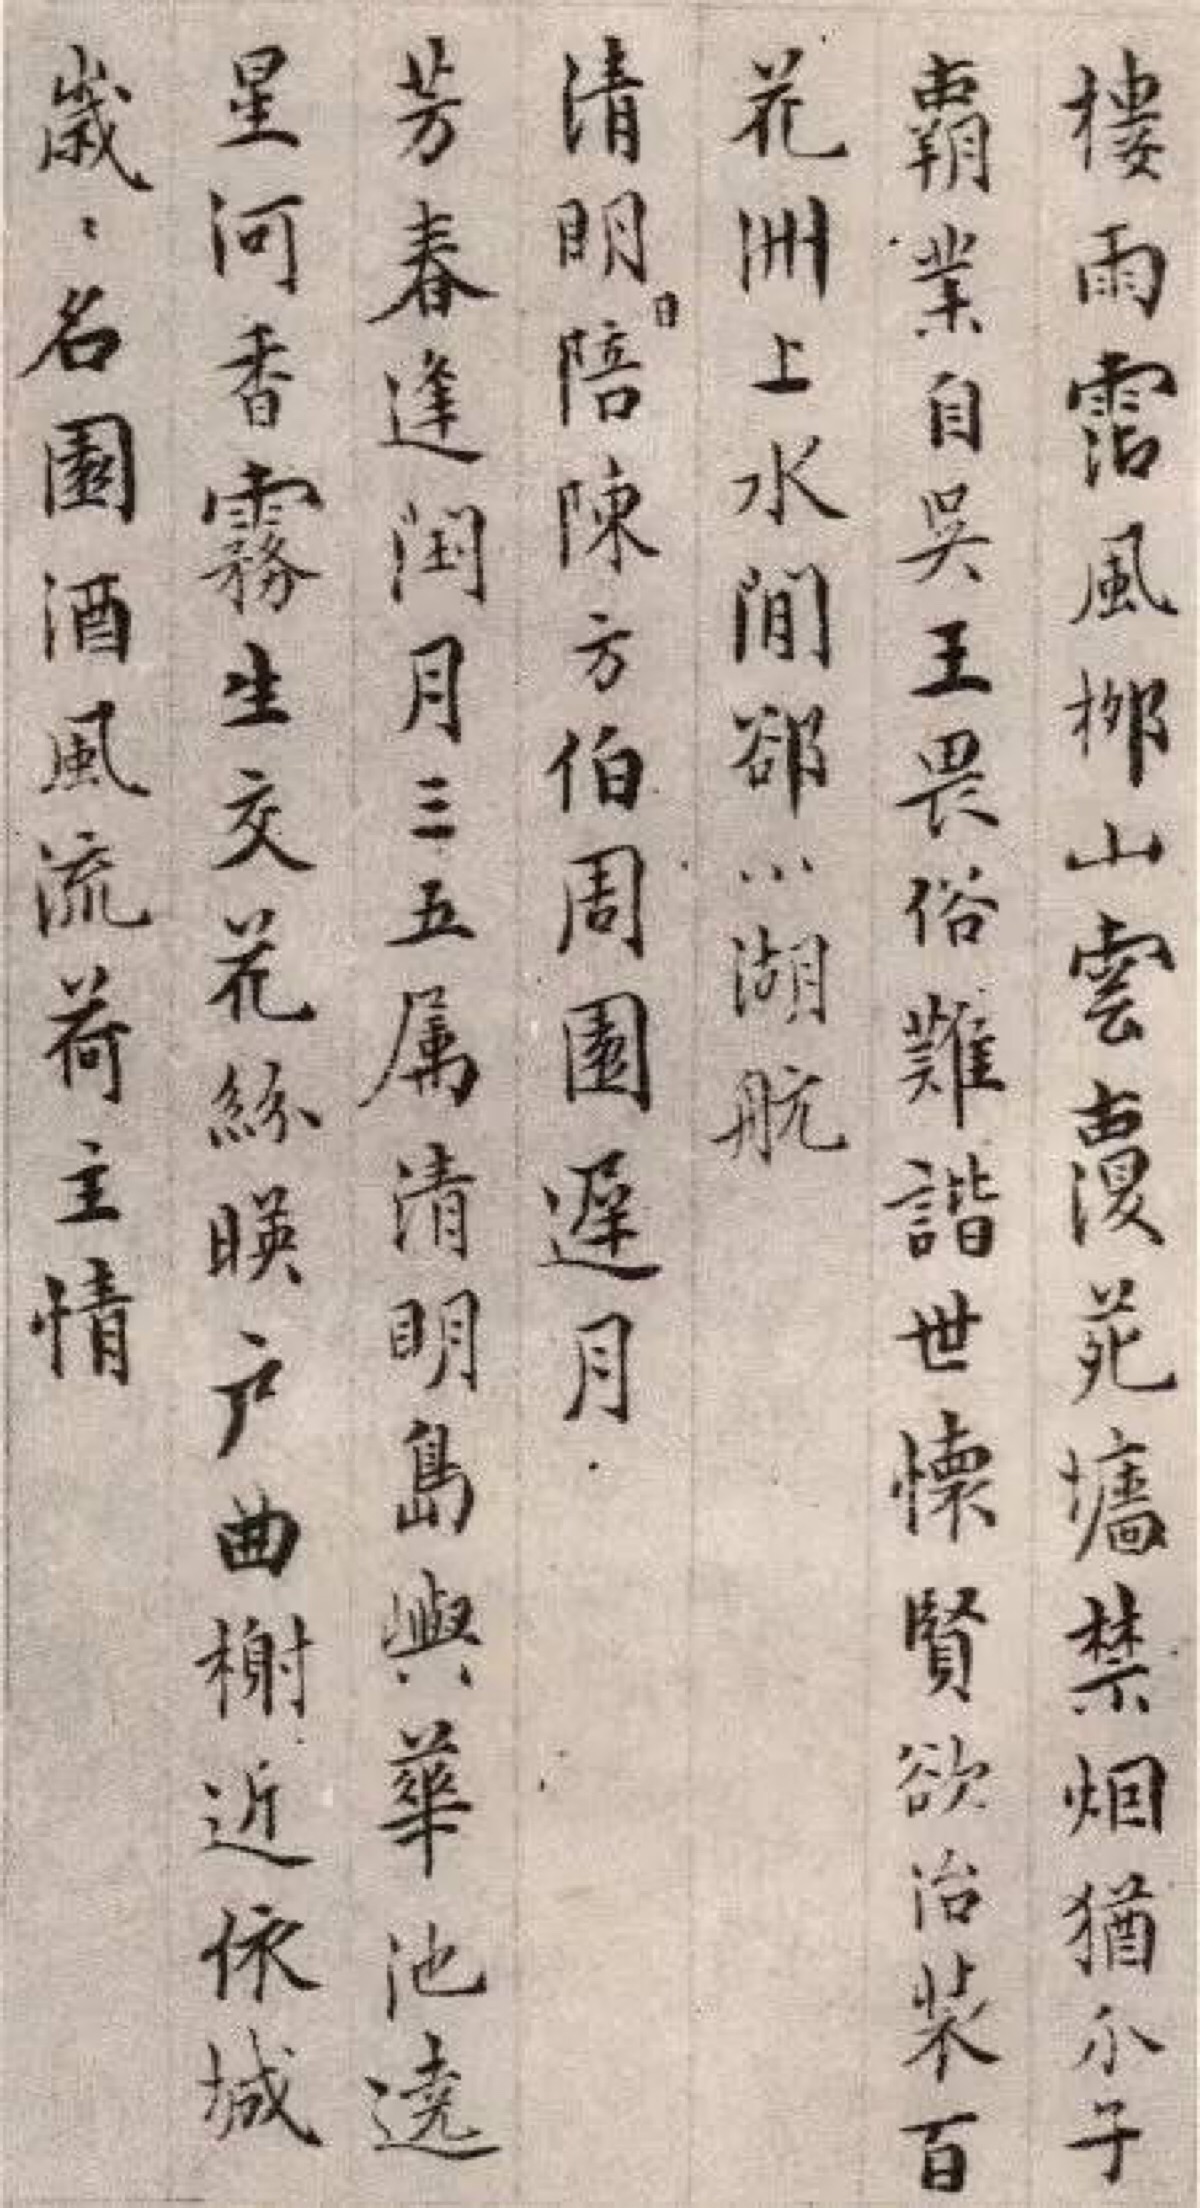 樓雨霑風柳山雲覆苑墻禁烟猶尒子
霸業自吳王畏俗難諧世懷賢欲治裝百
花洲上水閒郤小湖航
清明日陪陳方伯周園遲月
芳春逢閏月三五属清明島嶼華池遶
星河香霧生交花絲暎户曲榭近依城
歲〻名園酒風流荷主情